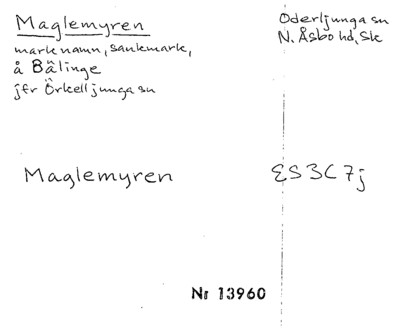 Maglemyren
marknamn, sankmark,
å Bälinge
jfr Örkelljunga sn
Oderljunga sn
N. Åsbo hd, Sk
Maglemyren
ES 3C 7j
Nr 13960